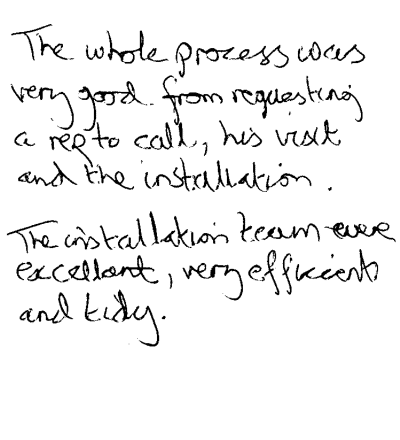 The whole process was
very good from requesting
a rep to call, his visit
and the installation.
The installation team were
excellent, very efficient
and tidy.